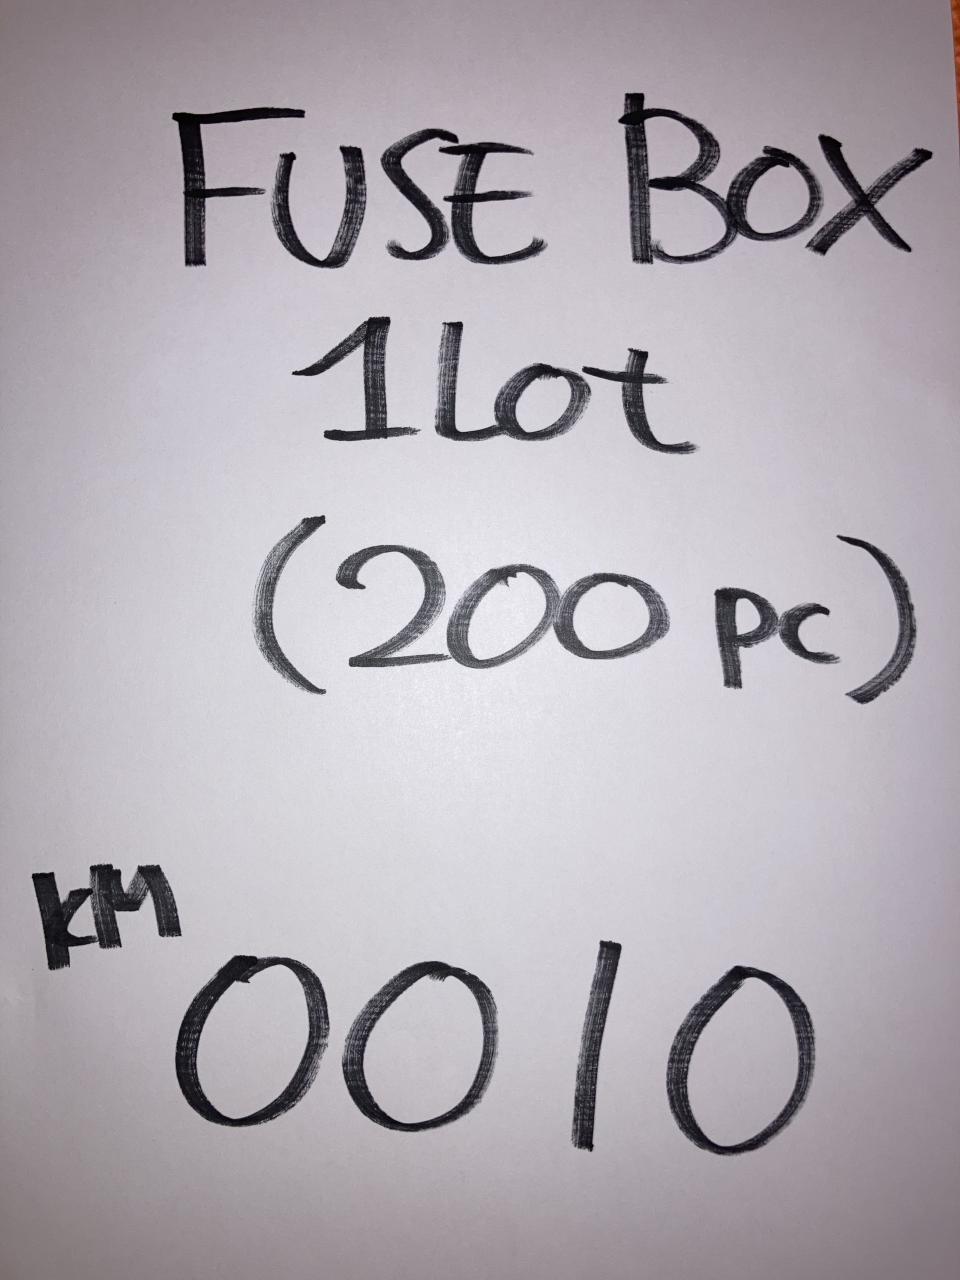 FUSE BOX
1 lot
(200 pc)
KM
0010